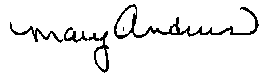 Mary Andrews